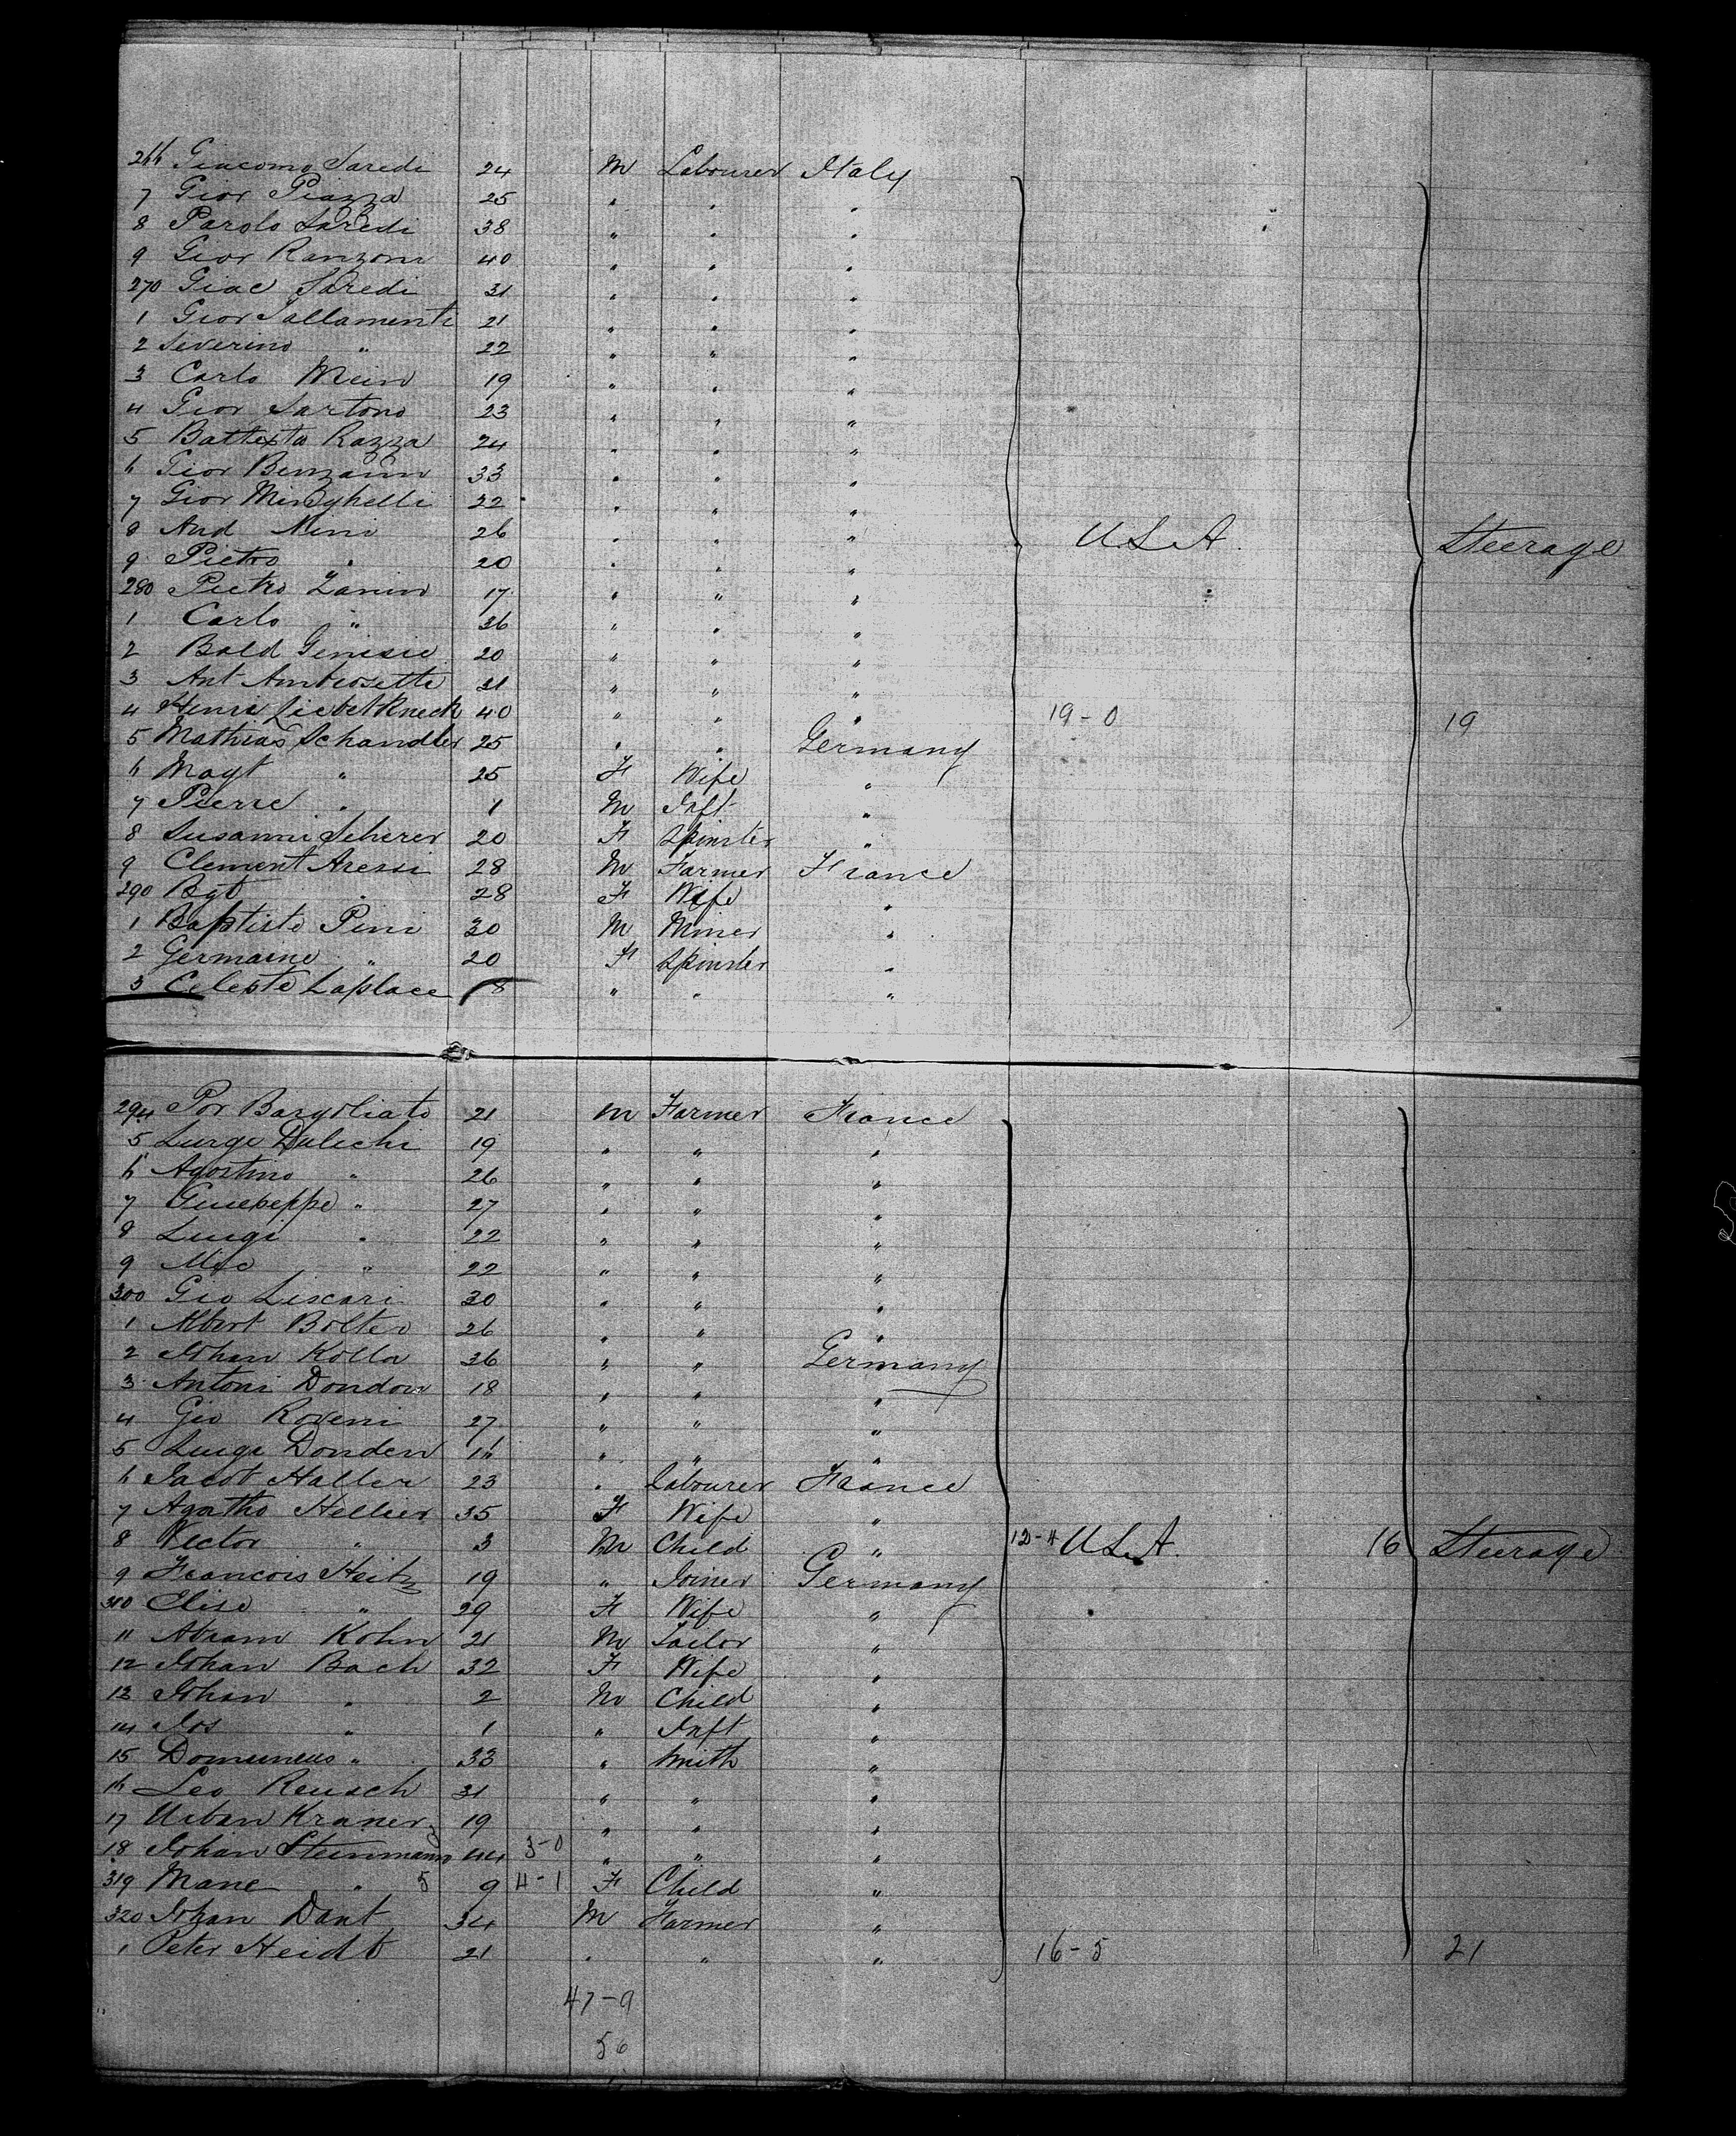 266 Giacomo Saredi 24 M Labourer Italy
7 Gior Piazza 25 " " "
8 Parolo Saredi 38 " " "
9 Gior Ranzoni 40 " " "
270 Giac Saredi 31 " " "
1 Gior Sallamenti 21 " " "
2 Severino " 22 " " "
3 Carlo Mein 19 " " "
4 Gior Sartono 23 " " "
5 Battista Razza 24 " " "
6 Gior Benzann 33 " " "
7 Gior Mindghelli 22 " " "
8 And Nini 26 " " " U.S.A. Steerage
9 Pietro " 20 " " "
280 Pietro Zanin 17 " " "
1 Carlo " 36 " " "
2 Bald Genisie 20 " " "
3 Ant Ambrosetti 21 " " "
4 Henri Liebetkneck 40 " " " 19-0 19
5 Mathias Schandler 25 " " Germany
6 Magt " 25 F Wife "
7 Pierre " 1 M Inft "
8 Susanni Scherer 20 F Spinster "
9 Clement Aressi 28 M Farmer France
290 Bgt " 28 F Wife "
1 Baptiste Pini 30 M Miner "
2 Germaine " 20 F Spinster "
3 Celeste Laplace 8 " " "
294 Por Bargoliato 21 M Farmer France
5 Lurge Dalechi 19 " " "
6 Agostino " 26 " " "
7 Guiseppe " 27 " " "
8 Luigi " 22 " " "
9 " 22 " " "
300 Gio Liscari 30 " " "
1 Albert Bolter 26 " " "
2 Johan Kolla 36 " " Germany
3 Antoni Dondon 18 " " "
4 Gio Roveni 27 " " "
5 Luigi Donden 16 " " "
6 Jacob Haller 23 " Labourer France
7 Agatho Hellier 35 F Wife "
8 Vector " 3 M Child " 12-4 U.S.A. 16 Steerage
9 Francois Heitz 19 " Joiner Germany
310 Elise " 29 F Wife "
11 Abram Kohn 21 M Tailor "
12 Johan Bach 32 F Wife "
13 Johan " 2 M Child "
14 Jos " 1 " Inft "
15 Domineus " 33 " Smith "
16 Leo Reusch 31 " " "
17 Urban Kraner 19 " " "
18 Johan Steinmann 44 3-0 " " "
319 Marie " 5 9 4-1 F Child "
320 Johan Dant 34 M Farmer "
1 Peter Heidt 21 " " " 16-5 21
47-9
56